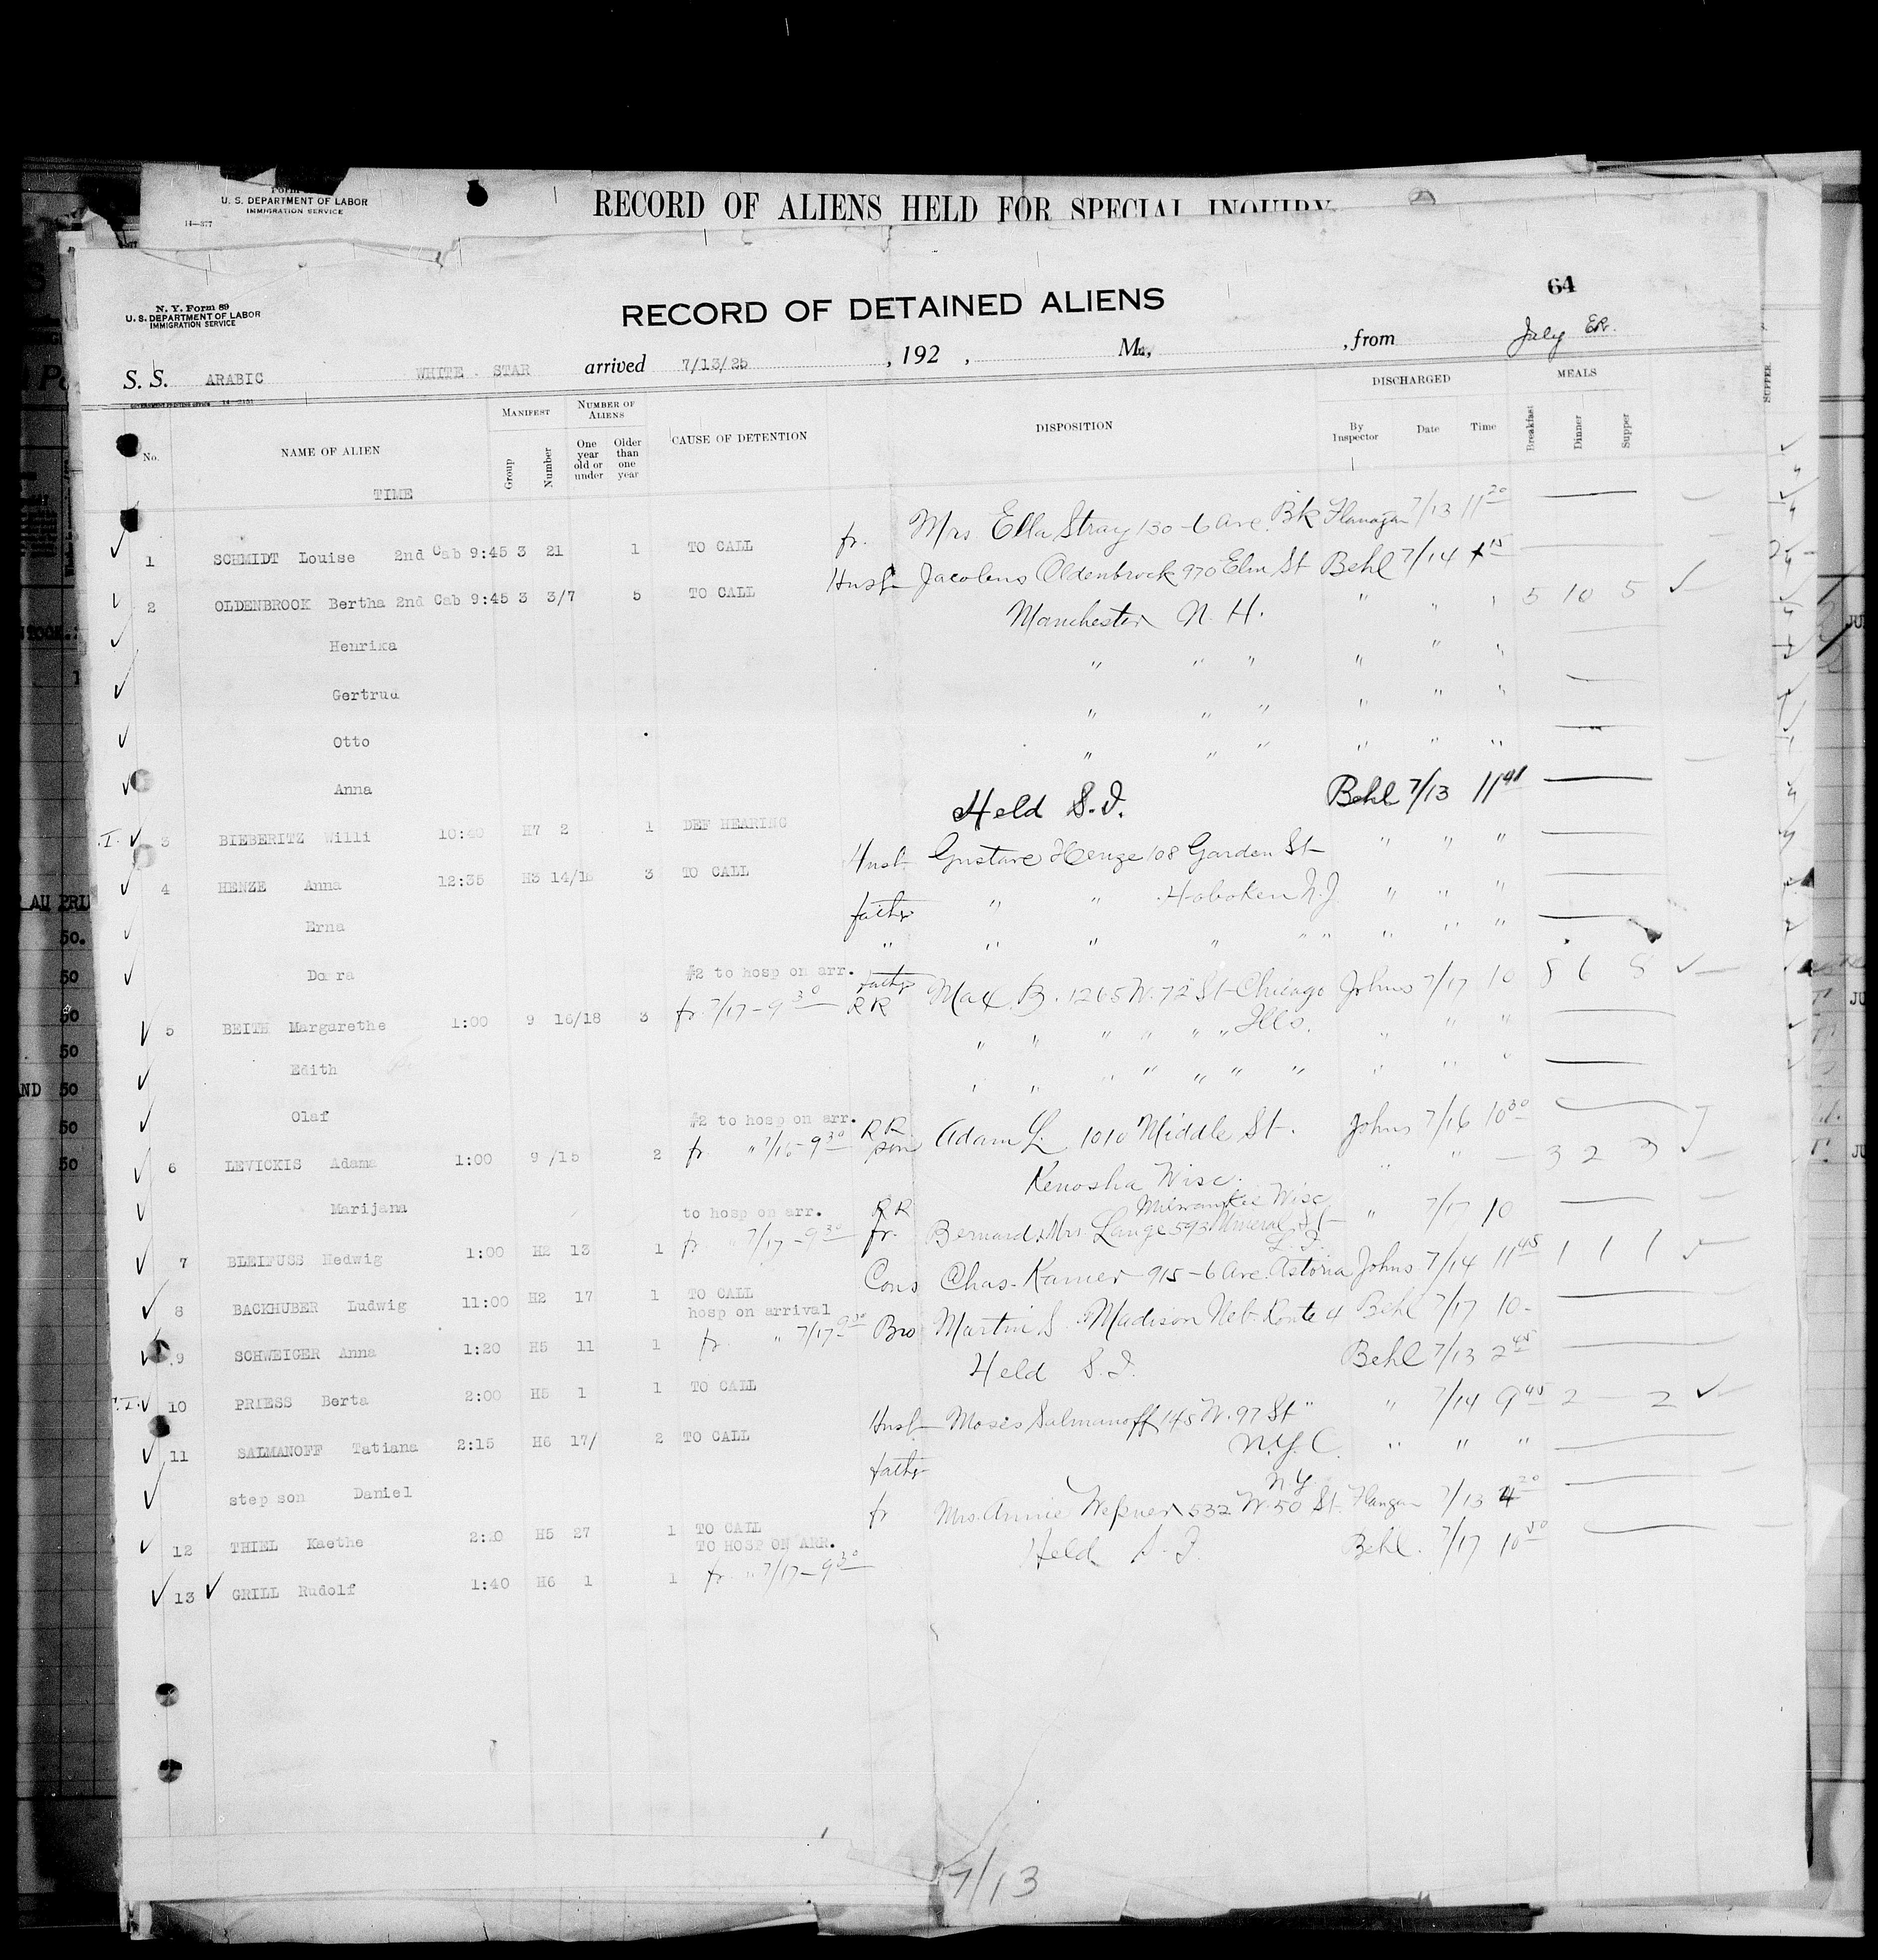 U. S. DEPARTMENT OF LABOR
IMMIGRATION SERVICE
14—377
RECORD OF ALIENS HELD FOR SPECIAL INQUIRY
64
N. Y. Form 89
U. S. DEPARTMENT OF LABOR
IMMIGRATION SERVICE
RECORD OF DETAINED ALIENS
S. S. ARABIC WHITE STAR arrived 7/13/25, 192 , M., from July
GOVERNMENT PRINTING OFFICE 14-2151
No. NAME OF ALIEN MANIFEST Group Number NUMBER OF ALIENS One year old or under Older than one year CAUSE OF DETENTION DISPOSITION DISCHARGED By Inspector Date Time MEALS Breakfast Dinner Supper
TIME
1 SCHMIDT Louise 2nd Cab 9:45 3 21 1 TO CALL fr. Mrs Ella Stray 130-6 Ave. Bk Flanagan 7/13 11 20
2 OLDENBROOK Bertha 2nd Cab 9:45 3 3/7 5 TO CALL Husb Jacobus Oldenbrock 970 Elm St Behl 7/14 15 5 10 5
Manchester N. H. " " "
Henrika " " " " " "
Gertrud " " " " " "
Otto " " " " " "
Anna
.I. 3 BIEBERITZ Willi 10:40 H7 2 1 DEF HEARING Held S.I. Behl 7/13 11 41
4 HENZE Anna 12:35 H3 14/16 3 TO CALL Husb Gustave Henze 108 Garden St " " "
Erna father " " Hoboken N.J. " " "
Dora " " " " " " " " "
5 BEITH Margarethe 1:00 9 16/18 3 #2 to hosp on arr. fr 7/17-9 30 father RR Max B. 1265 W. 72 St Chicago Johns 7/17 10 8 6 8
Ills.
Edith " " " " " " " "
Olaf " " " " " " " "
6 LEVICKIS Adama 1:00 9 /15 2 #2 to hosp on arr. fr. " 7/16-9 30 RR son Adam L. 1010 Middle St. Johns 7/16 10 30 3 2 3
Marijana Kenosha Wisc. " "
7 BLEIFUSS Hedwig 1:00 H2 13 1 to hosp on arr. fr " 7/17-9 30 RR fr. Bernard & Mrs Lange 593 Mineral St Milwaukee Wisc " 7/17 10
8 BACKHUBER Ludwig 11:00 H2 17 1 TO CALL Cons Chas. Kamer 915-6 Ave. Astoria L.I. Johns 7/14 11 45 1 1 1
9 SCHWEIGER Anna 1:20 H5 11 1 hosp on arrival fr. " 7/17 9 30 Bro Martin S. Madison Neb. Route 4 Behl 7/17 10-
10 PRIESS Berta 2:00 H5 1 1 TO CALL Held S.I. Behl 7/13 2 45
11 SALMANOFF Tatiana 2:15 H6 17/ 2 TO CALL Husb Moses Salmanoff 145 W. 97 St " " 7/14 9 45 2 — 2
step son Daniel father N.Y.C. " " "
12 THIEL Kaethe 2:20 H5 27 1 TO CALL fr Mrs. Annie 532 W. 50 St. N.Y. Flangan 7/13 4 20
13 GRILL Rudolf 1:40 H6 1 1 TO HOSP ON ARR. fr. " 7/17-9 30 Held S.I. Behl. 7/17 10 50
7/13